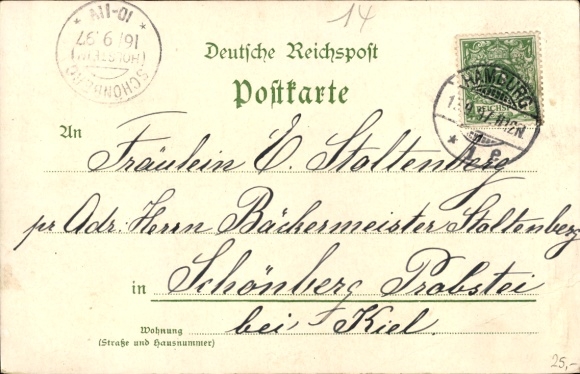 14
Deutsche Reichspost
Postkarte
SCHÖNBERG
(HOLSTEIN)
16/ 9.97
* 10-11V *
HAMBURG
REICHSPOST
An
Fräulein E. Stoltenberg
pr Adr: Herrn Bäckermeister Stoltenberg
in Schönberg Probstei
bei Kiel.
Wohnung
(Straße und Hausnummer)
25,-